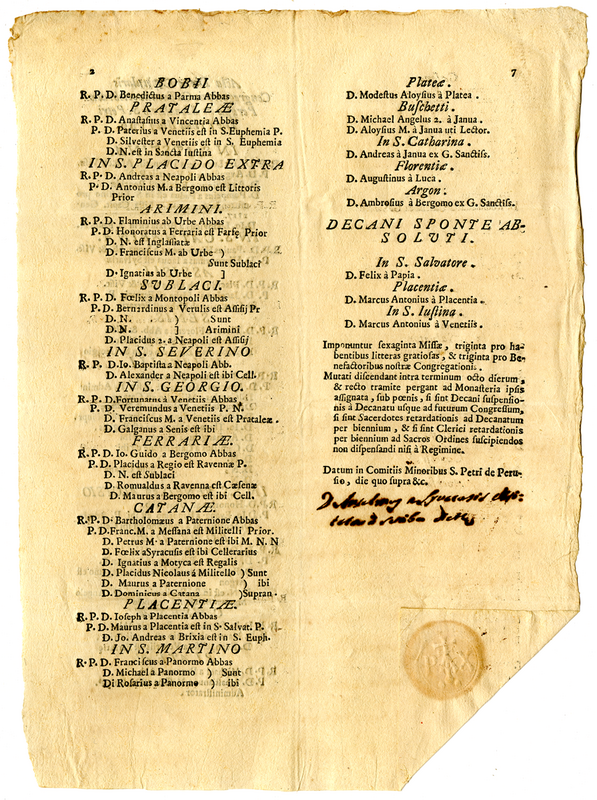 2
BOBII
R. P. D. Benedictus a Parma Abbas
PRATALEÆ
R. P. D. Anastasius a Vincentia Abbas
P. D. Paterius a Venetiis est in S. Euphemia P.
D. Silvester a Venetiis est in S. Euphemia
D. N. est in Sancta Iustina
IN S. PLACIDO EXTRA
R. P. D. Andreas a Neapoli Abbas
P. D. Antonius M. a Bergomo est Littoris
Prior
ARIMINI.
R. P. D. Flaminius ab Urbe Abbas
P. D. Honoratus a Ferraria est Farfę Prior
D. N. est Inglassiatæ
D. Franciscus M. ab Urbe )
Sunt Sublaci
D. Ignatius ab Urbe ]
SUBLACI.
R. P. D. Fœlix a Montopoli Abbas
P. D. Bernardinus a Verulis est Assisij Pr
D. N. . ) Sunt
D. N. ] Arimini
D. Placidus 2. a Neapoli est Assisij
IN S. SEVERINO
R. P. D. Io. Baptista a Neapoli Abb.
D. Alexander a Neapoli est ibi Cell.
IN S. GEORGIO.
R. P. D. Fortunatus à Venetiis Abbas
P. D. Veremundus a Venetiis P. N.
D. Franciscus M. a Venetiis est Prataleæ.
D. Galganus a Senis est ibi
FERRARIÆ.
R. P. D. Io. Guido a Bergomo Abbas
P. D. Placidus a Regio est Ravennæ P.
D. N. est Sublaci
D. Romualdus a Ravenna est Cæsenæ
D. Maurus a Bergomo est ibi Cell.
CATANÆ.
R. P. D. Bartholomæus a Paternione Abbas
P. D. Franc. M. a Messana est Militelli Prior.
D. Petrus M. a Paternione est ibi M. N. N
D. Fœlix a Syracusis est ibi Cellerarius
D. Ignatius a Motyca est Regalis
D. Placidus Nicolaus á Militello ) Sunt
D. Maurus a Paternione ) ibi
D. Dominicus a Catana ) Supran.
PLACENTIÆ.
R. P. D. Ioseph a Placentia Abbas
P. D. Maurus a Placentia est in S. Salvat. P.
D. Jo. Andreas a Brixia est in S. Euph.
IN S. MARTINO
R. P. D. Franciscus a Panormo Abbas
D. Michael a Panormo ) Sunt
Di Rosarius a Panormo ) ibi
7
Plateæ.
D. Modestus Aloysius à Platea.
Buschetti.
D. Michael Angelus 2. à Janua.
D. Aloysius M. à Janua uti Lector.
In S. Catharina.
D. Andreas à Janua ex G. Sanctiss.
Florentiæ.
D. Augustinus à Luca.
Argon.
D. Ambrosius à Bergomo ex G. Sanctiss.
DECANI SPONTE AB-
SOLUTI.
In S. Salvatore.
D. Felix à Papia.
Placentiæ.
D. Marcus Antonius à Placentia.
In S. Iustina.
D. Marcus Antonius à Venetiis.
Imponuntur sexaginta Missæ, triginta pro ha-
bentibus litteras gratiosas, & triginta pro Be-
nefactoribus nostræ Congregationis.
Mutati discendant intra terminum octo dierum,
& recto tramite pergant ad Monasteria ipsis
assignata, sub pœnis, si sint Decani suspensio-
nis à Decanatu usque ad futurum Congressum,
si sint Sacerdotes retardationis ad Decanatum
per biennium, & si sint Clerici retardationis
per biennium ad Sacros Ordines suscipiendos
non dispensandi nisi à Regimine.
Datum in Comitiis Minoribus S. Petri de Peru-
sio, die quo supra &c.